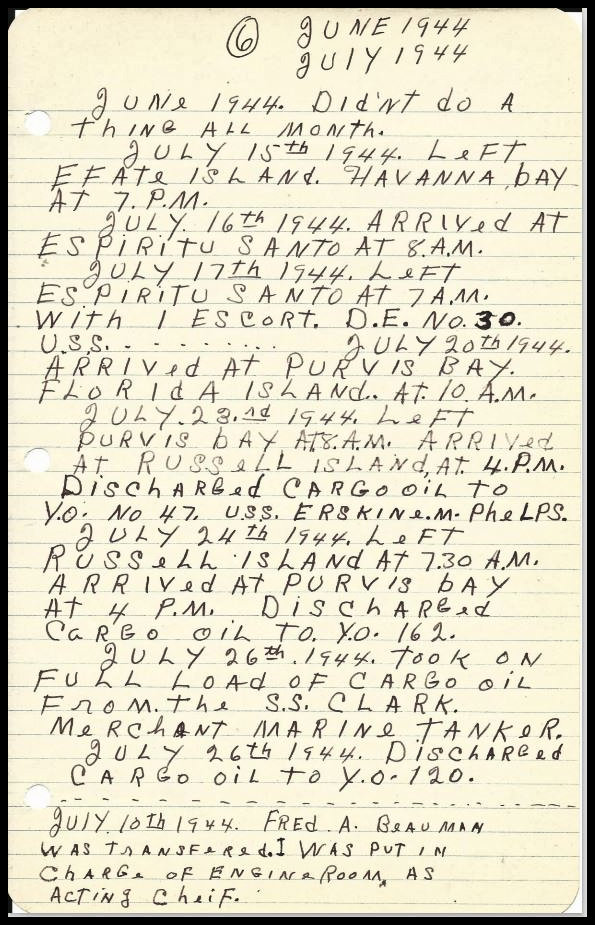 ⑥ JUNE 1944
JULY 1944
JUNe 1944. DId'NT do A
thING ALL MONTH.
JULY 15th 1944. LeFT
EFATe ISLANd. HAVANNA bAY
AT 7. P.M.
JULY. 16th 1944. ARRIVed AT
ESPIRITU SANTO AT 8.A.M.
JULY 17th 1944. LeFT
ESPIRITU SANTO AT 7A.M.
WITH 1 ESCORT. D.E. No. 30.
U.S.S. - - - - - - - - - - JULY 20th 1944.
ARRIVed AT PURVIS BAY.
FLORIdA ISLANd.. AT. 10. A.M.
JULY. 23.rd 1944. LeFT
PURVIS bAY AT8.A.M. ARRIVed
AT RUSSeLL ISLANd, AT 4.P.M.
DISchARGed CARGO OIL TO
Y.O. No 47. USS. ERSKINe.M. PheLPS.
JULY 24th 1944. LeFT
RUSSeLL ISLANd AT 7.30 A.M.
ARRIVed AT PURVIS bAY
AT 4 P.M. DISchARGed
CARGO OIL TO. Y.O. 162.
JULY 26th. 1944. TOOK ON
FULL LOAD OF CARGO OIL
FROM. the S.S. CLARK.
MeRCHANT MARINe TANKeR.
JULY 26th 1944. DISCHARGed
CARGO OIL TO Y.O-120.
JULY. 10th 1944. FREd. A. BeAUMAN
WAS TRANSFeRed. I WAS PUT IN
CHARGe OF ENGINe ROOM, AS
ACTING CheIF.